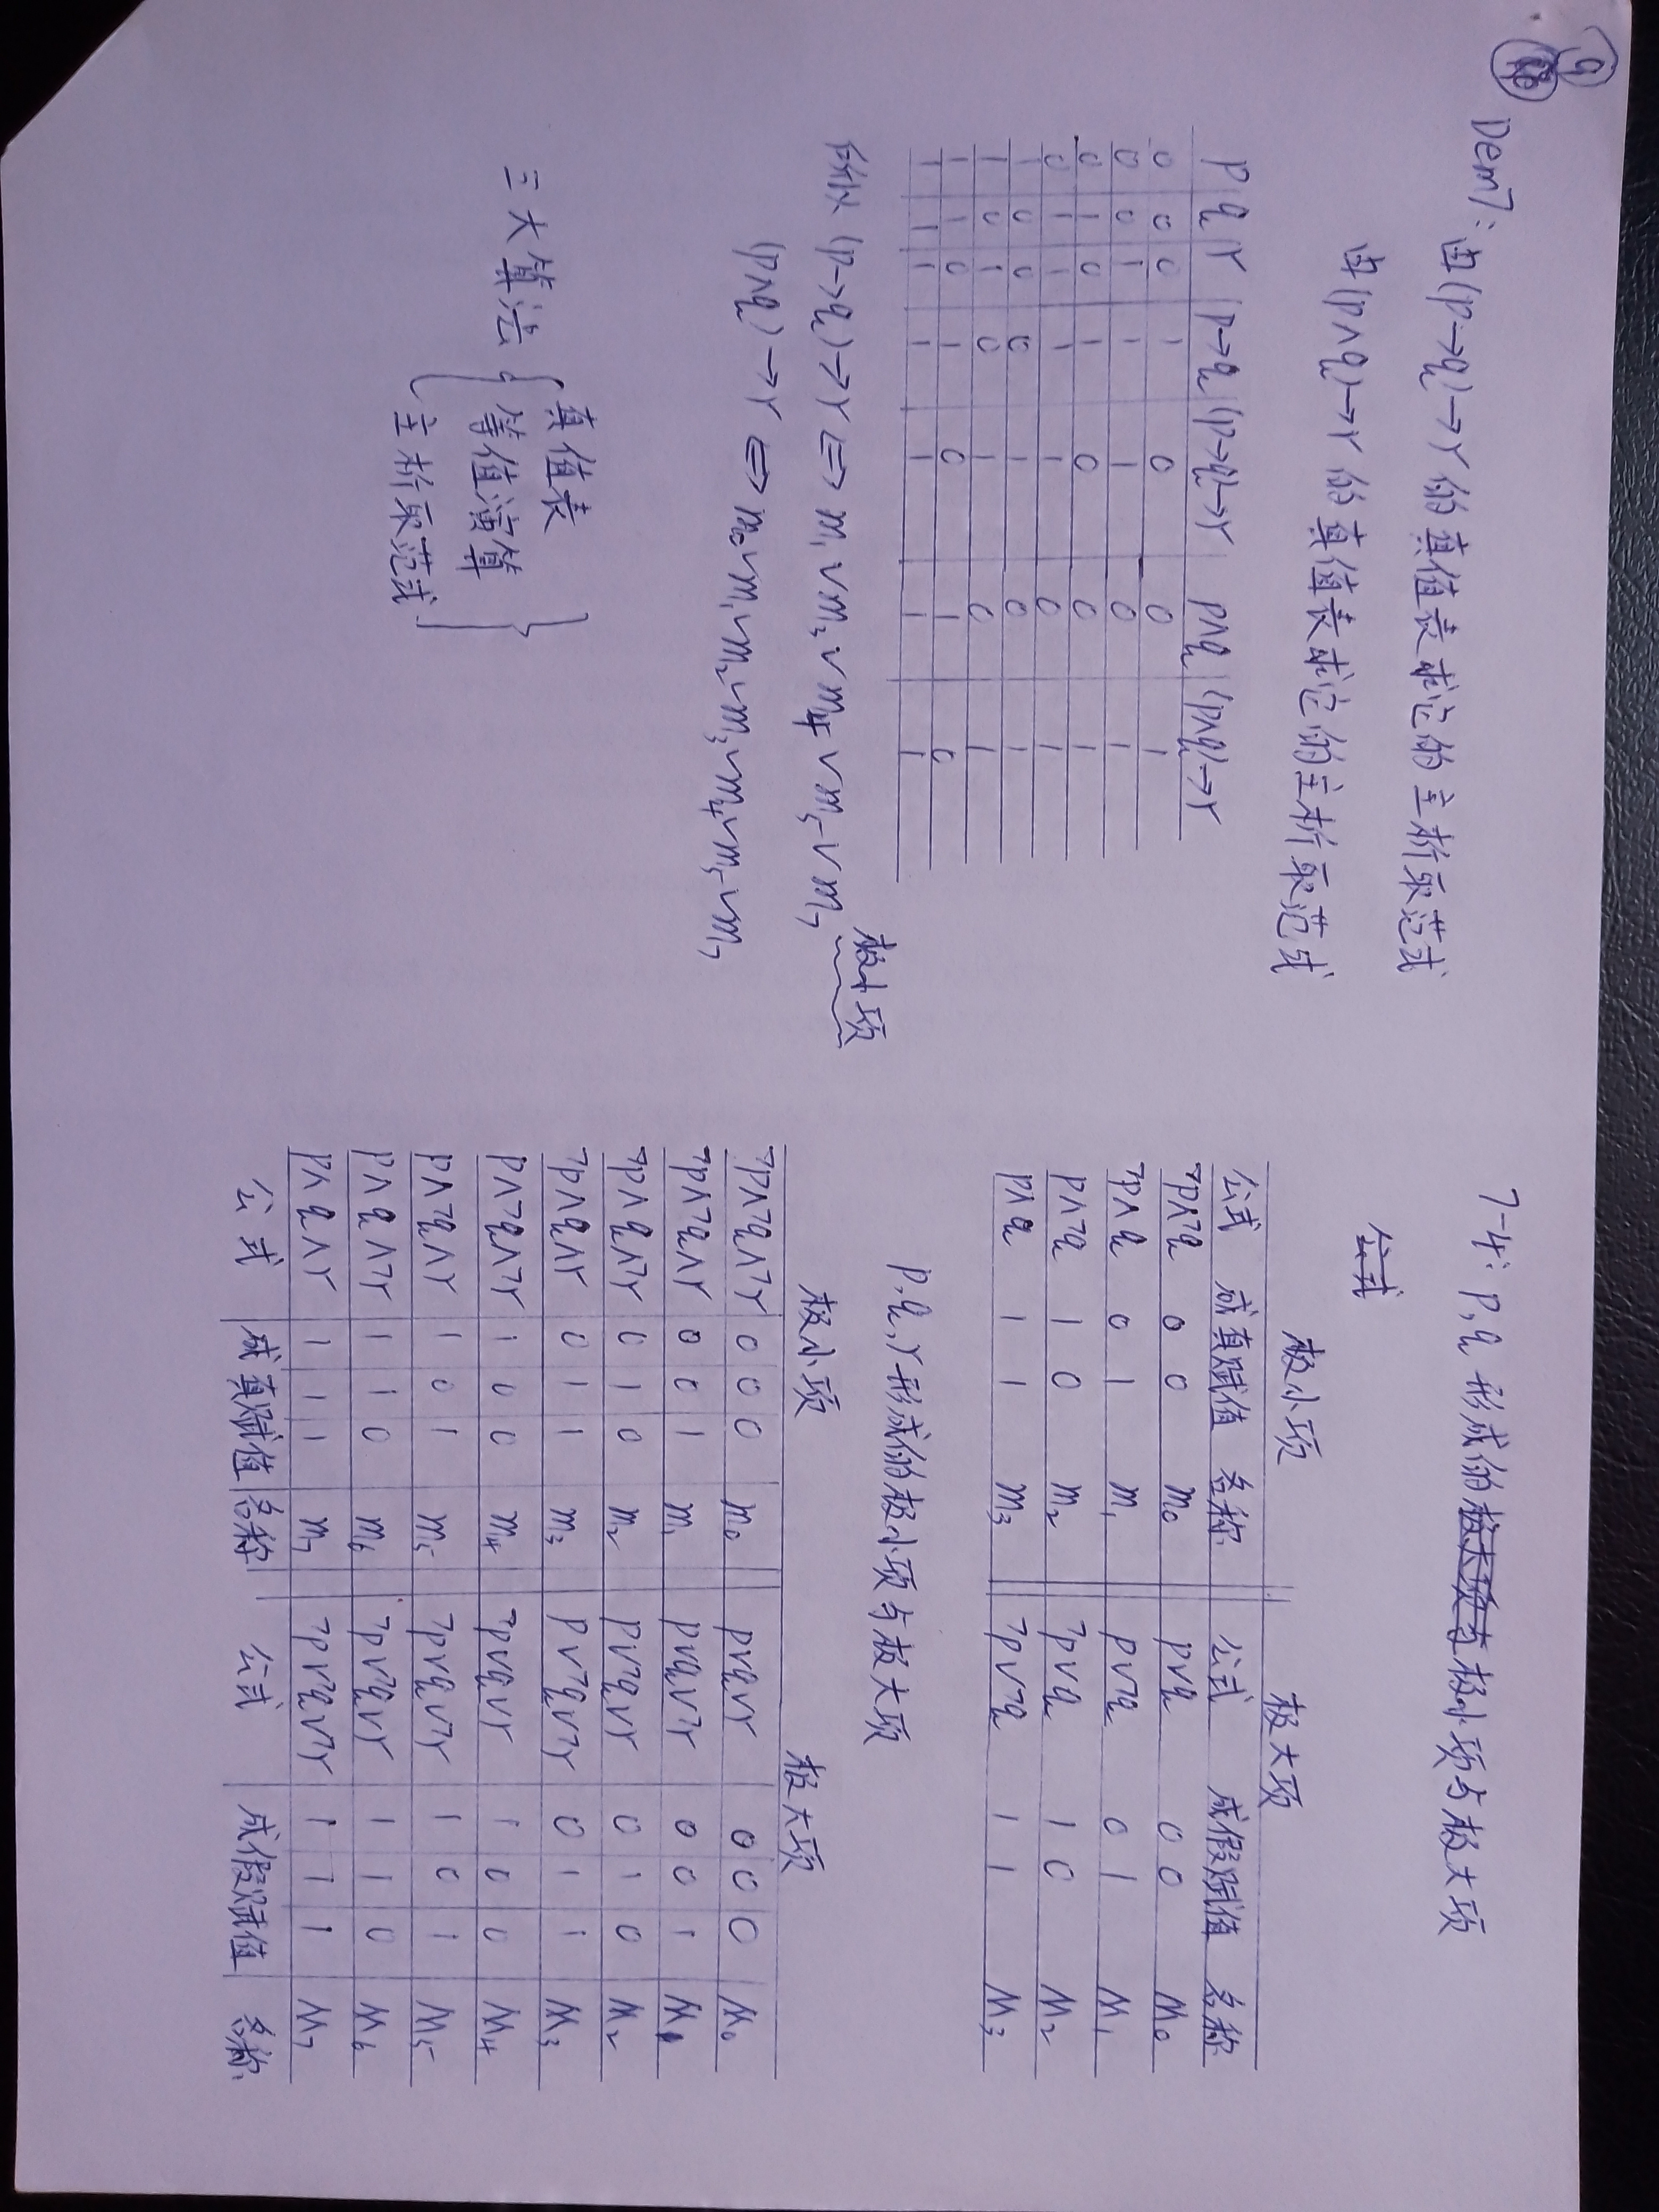 9
Dem7:
由(p→q)→r 的真值表求它的主析取范式
由(p∧q)→r 的真值表求它的主析取范式
p q r p→q (p→q)→r p∧q (p∧q)→r
0 0 0 1 0 0 1
0 0 1 1 1 0 1
0 1 0 1 0 0 1
0 1 1 1 1 0 1
1 0 0 0 1 0 1
1 0 1 0 1 0 1
1 1 0 1 0 1 0
1 1 1 1 1 1 1
极小项
所以 (p→q)→r ⇔ m₁∨m₃∨m₄∨m₅∨m₇
(p∧q)→r ⇔ m₀∨m₁∨m₂∨m₃∨m₄∨m₅∨m₇
三大算法
真值表
等值演算
主析取范式
7-4: p,q 形成的极大项与极小项与极大项
公式
极小项 极大项
公式 成真赋值 名称 公式 成假赋值 名称
¬p∧¬q 0 0 m₀ p∨q 0 0 M₀
¬p∧q 0 1 m₁ p∨¬q 0 1 M₁
p∧¬q 1 0 m₂ ¬p∨q 1 0 M₂
p∧q 1 1 m₃ ¬p∨¬q 1 1 M₃
p,q,r形成的极小项与极大项
极小项 极大项
¬p∧¬q∧¬r 0 0 0 m₀ p∨q∨r 0 0 0 M₀
¬p∧¬q∧r 0 0 1 m₁ p∨q∨¬r 0 0 1 M₁
¬p∧q∧¬r 0 1 0 m₂ p∨¬q∨r 0 1 0 M₂
¬p∧q∧r 0 1 1 m₃ p∨¬q∨¬r 0 1 1 M₃
p∧¬q∧¬r 1 0 0 m₄ ¬p∨q∨r 1 0 0 M₄
p∧¬q∧r 1 0 1 m₅ ¬p∨q∨¬r 1 0 1 M₅
p∧q∧¬r 1 1 0 m₆ ¬p∨¬q∨r 1 1 0 M₆
p∧q∧r 1 1 1 m₇ ¬p∨¬q∨¬r 1 1 1 M₇
公式 成真赋值 名称 公式 成假赋值 名称